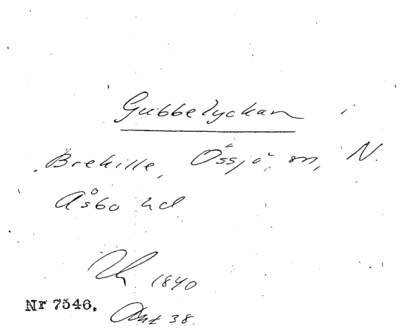 Gubbelyckan i
Brehille, Össjö, sn, N.
Åsbo hd
1840
Nr 7546.
38.